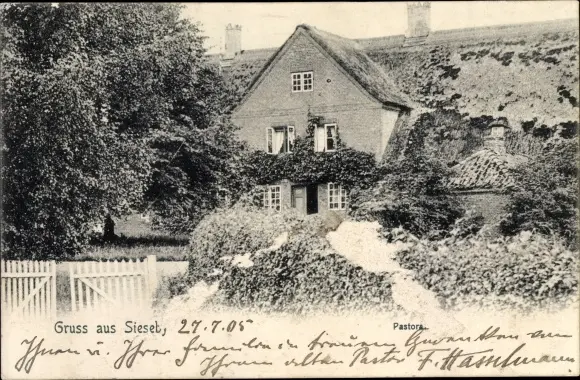 Gruss aus Sieseb, 27.7.05
Pastora
Ihnen u. Ihrer Familie in treuem Gedenken von
Ihrem alten Pastor F. Hasselmann